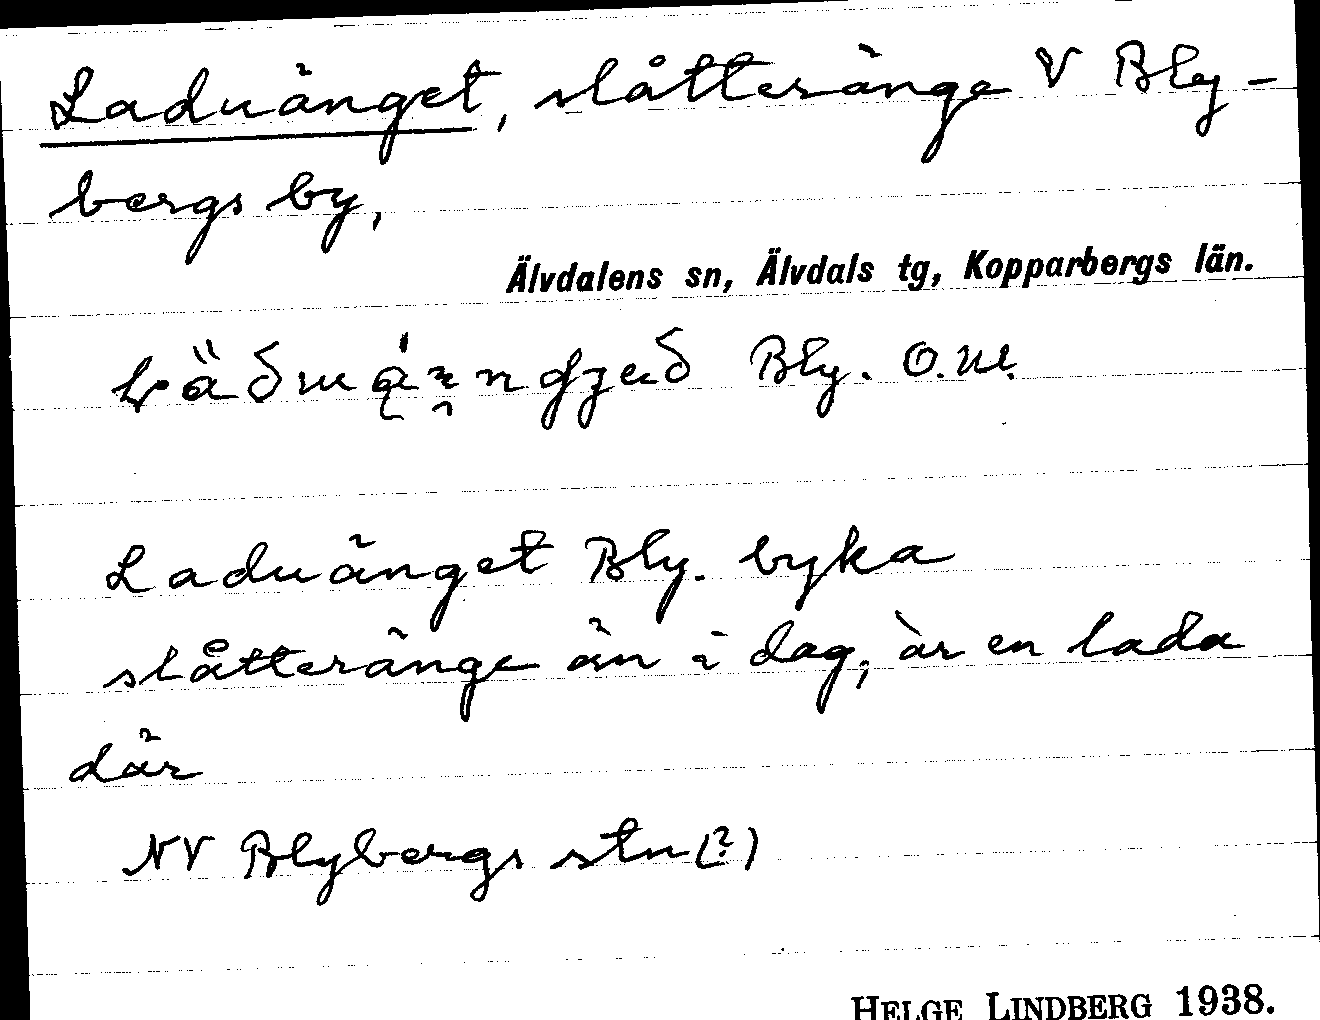 Laduänget, slåtteränge V Bly-
bergs by,
Älvdalens sn, Älvdals tg, Kopparbergs län.
Bly. O.M.
Laduänget Bly. byka
slåtteränge än i dag, är en lada
där
NV Blybergs stn (?)
HELGE LINDBERG 1938.